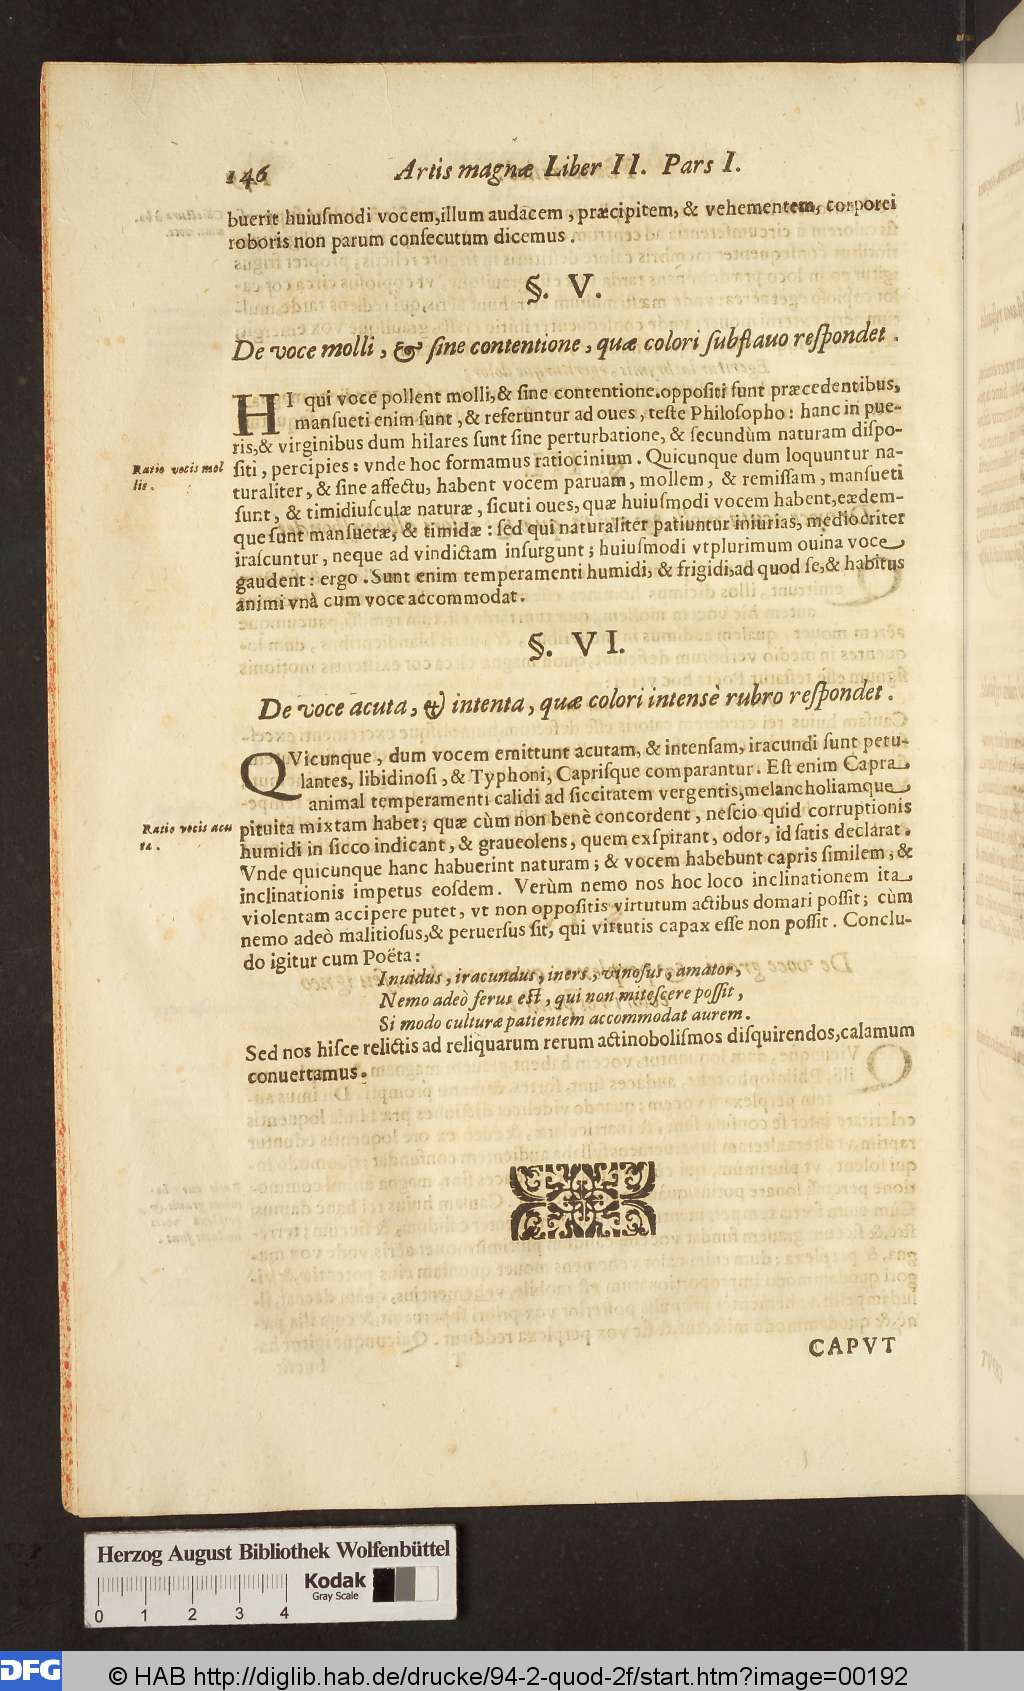 146 Artis magnæ Liber II. Pars I.
buerit huiuſmodi vocem, illum audacem, præcipitem, & vehementem, corporei
roboris non parum conſecutum dicemus.
§. V.
De voce molli, & ſine contentione, quæ colori ſubflauo reſpondet.
HI qui voce pollent molli, & ſine contentione. oppoſiti ſunt præcedentibus,
manſueti enim ſunt, & referuntur ad oues, teſte Philoſopho: hanc in pue-
ris, & virginibus dum hilares ſunt ſine perturbatione, & ſecundùm naturam diſpo-
Ratio vocis mol
lis.
ſiti, percipies: vnde hoc formamus ratiocinium. Quicunque dum loquuntur na-
turaliter, & ſine affectu, habent vocem paruam, mollem, & remiſſam, manſueti
ſunt, & timidiuſculæ naturæ, ſicuti oues, quæ huiuſmodi vocem habent, eædem-
que ſunt manſuetæ, & timidæ: ſed qui naturaliter patiuntur iniurias, mediocriter
iraſcuntur, neque ad vindictam inſurgunt; huiuſmodi vtplurimum ouina voce
gaudent: ergo. Sunt enim temperamenti humidi, & frigidi, ad quod ſe, & habitus
animi vnà cum voce accommodat.
§. VI.
De voce acuta, & intenta, quæ colori intensè rubro reſpondet.
QVicunque, dum vocem emittunt acutam, & intenſam, iracundi ſunt petu-
lantes, libidinoſi, & Typhoni, Capriſque comparantur. Eſt enim Capra
animal temperamenti calidi ad ſiccitatem vergentis, melancholiamque
Ratio vocis acu
ta.
pituita mixtam habet; quæ cùm non benè concordent, neſcio quid corruptionis
humidi in ſicco indicant, & graueolens, quem exſpirant, odor, id ſatis declarat.
Vnde quicunque hanc habuerint naturam; & vocem habebunt capris ſimilem, &
inclinationis impetus eoſdem. Verùm nemo nos hoc loco inclinationem ita
violentam accipere putet, vt non oppoſitis virtutum actibus domari poſſit; cùm
nemo adeò malitioſus, & peruerſus ſit, qui virtutis capax eſſe non poſſit. Conclu-
do igitur cum Poëta:
Inuidus, iracundus, iners, vinoſus, amator,
Nemo adeò ferus eſt, qui non miteſcere poſſit,
Si modo culturæ patientem accommodat aurem.
Sed nos hiſce relictis ad reliquarum rerum actinoboliſmos diſquirendos, calamum
conuertamus.
CAPVT
Herzog August Bibliothek Wolfenbüttel
Kodak
Gray Scale
0 1 2 3 4
DFG © HAB http://diglib.hab.de/drucke/94-2-quod-2f/start.htm?image=00192